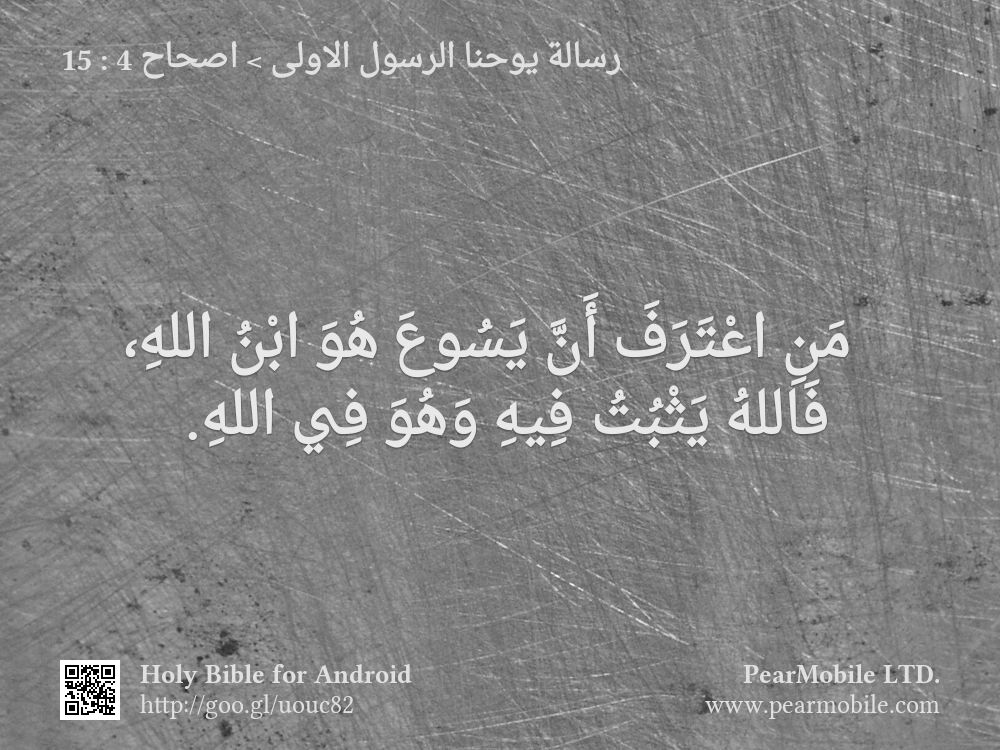 رسالة يوحنا الرسول الاولى > اصحاح 4 : 15
مَنِ اعْتَرَفَ أَنَّ يَسُوعَ هُوَ ابْنُ اللهِ،
فَاَللهُ يَثْبُتُ فِيهِ وَهُوَ فِي اللهِ.
Holy Bible for Android
http://goo.gl/uouc82
PearMobile LTD.
www.pearmobile.com